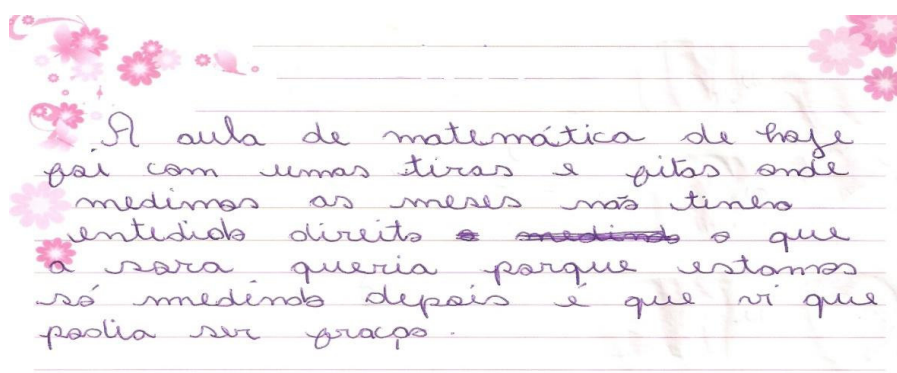 A aula de matemática de hoje
foi com umas tiras e fitas onde
medimos as meses não tinha
entedido direito o que
a sora queria porque estamos
só medindo depois é que vi que
podia ser fração.